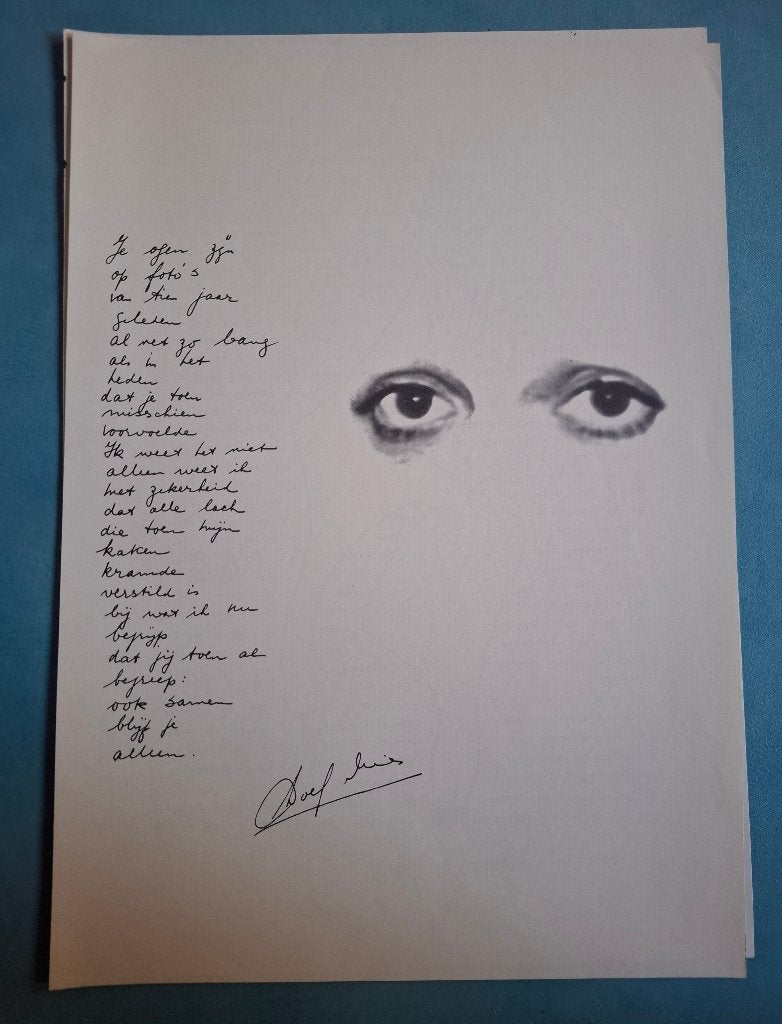 Je ogen zijn
op foto's
van tien jaar
geleden
al net zo bang
als in het
heden
dat je toen
misschien
voorvoelde
Ik weet het niet
alleen weet ik
met zekerheid
dat alle lach
die toen mijn
kaken
kramde
verstild is
bij wat ik nu
begrijp
dat jij toen al
begreep:
ook samen
blijf je
alleen.